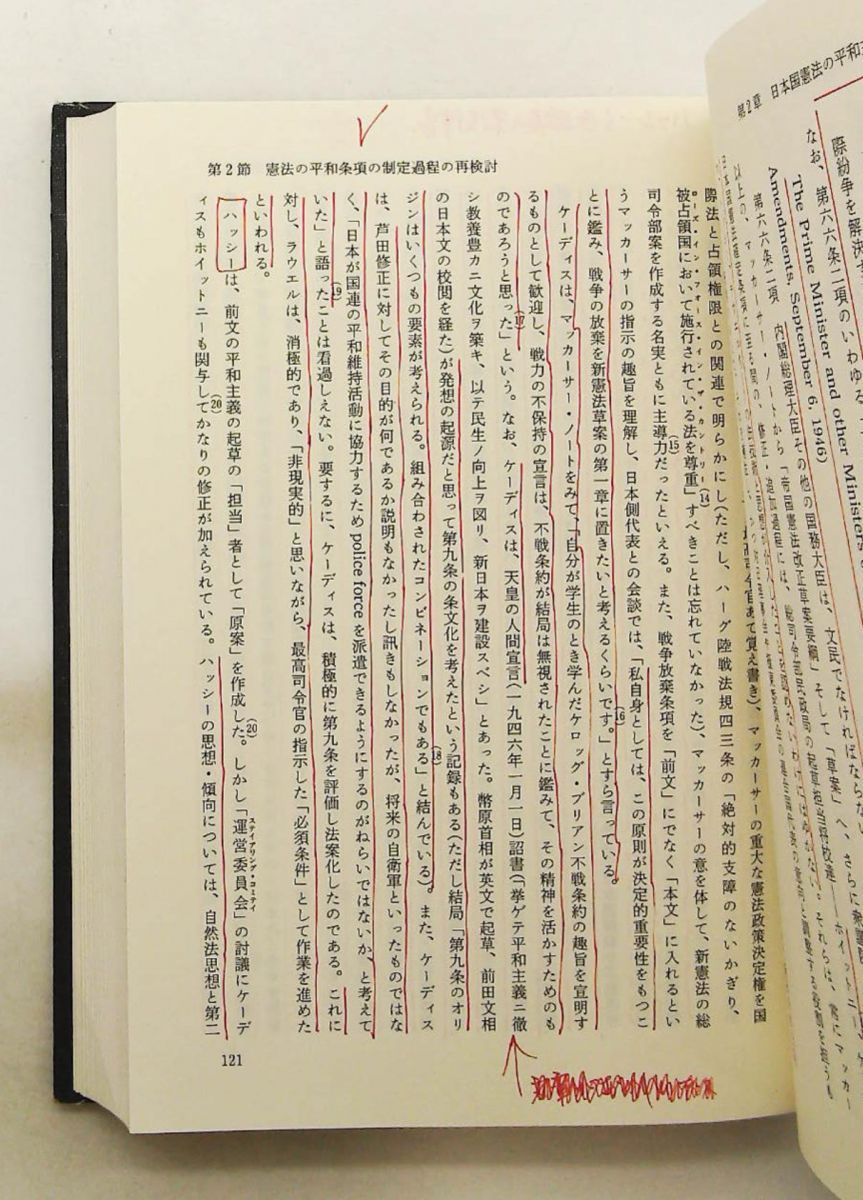 第2章 日本国憲法の平和
際紛争を解決す
なお、第六六条二項のいわゆる
The Prime Minister and other Ministers
Amendments, September 6, 1946)
第六六条二項 内閣総理大臣その他の国務大臣は、文民でなければならない
以上の、マッカーサー・ノートから「帝国憲法改正草案要綱」そして「草案」へ、さらに衆議院
第2節 憲法の平和条項の制定過程の再検討
際法と占領権限との関連で明らかにし(ただし、ハーグ陸戦法規四三条の「絶対的支障のないかぎり、
被占領国において施行されている法を尊重」すべきことは忘れていなかった)、マッカーサーの意を体して、新憲法の総
ローズ・イン・フォース・イン・ザ・カントリー
(14)
司令部案を作成する名実ともに主導力だったといえる。また、戦争放棄条項を「前文」にでなく「本文」に入れるとい
(15)
うマッカーサーの指示の趣旨を理解し、日本側代表との会談では、「私自身としては、この原則が決定的重要性をもつこ
とに鑑み、戦争の放棄を新憲法草案の第一章に置きたいと考えるくらいです。」とすら言っている。
(16)
ケーディスは、マッカーサー・ノートをみて、「自分が学生のとき学んだケロッグ・ブリアン不戦条約の趣旨を宣明す
るものとして歓迎し、戦力の不保持の宣言は、不戦条約が結局は無視されたことに鑑みて、その精神を活かすためのも
のであろうと思った」という。なお、ケーディスは、天皇の人間宣言(一九四六年一月一日)詔書(「挙ゲテ平和主義ニ徹
(17)
シ教養豊カニ文化ヲ築キ、以テ民生ノ向上ヲ図リ、新日本ヲ建設スベシ」とあった。幣原首相が英文で起草、前田文相
の日本文の校閲を経た)が発想の起源だと思って第九条の条文化を考えたという記録もある(ただし結局「第九条のオリ
ジンはいくつもの要素が考えられる。組み合わされたコンビネーションでもある」と結んでいる)。また、ケーディス
(18)
は、芦田修正に対してその目的が何であるか説明もなかったし訊きもしなかったが、将来の自衛軍といったものではな
く、「日本が国連の平和維持活動に協力するため police force を派遣できるようにするのがねらいではないか、と考えて
いた」と語ったことは看過しえない。要するに、ケーディスは、積極的に第九条を評価し法案化したのである。これに
(19)
対し、ラウエルは、消極的であり、「非現実的」と思いながら、最高司令官の指示した「必須条件」として作業を進めた
といわれる。
ハッシーは、前文の平和主義の起草の「担当」者として「原案」を作成した。しかし「運営委員会」の討議にケーデ
(20)
ステイアリング・コミテイ
ィスもホイットニーも関与してかなりの修正が加えられている。ハッシーの思想・傾向については、自然法思想と第二
(20)
121